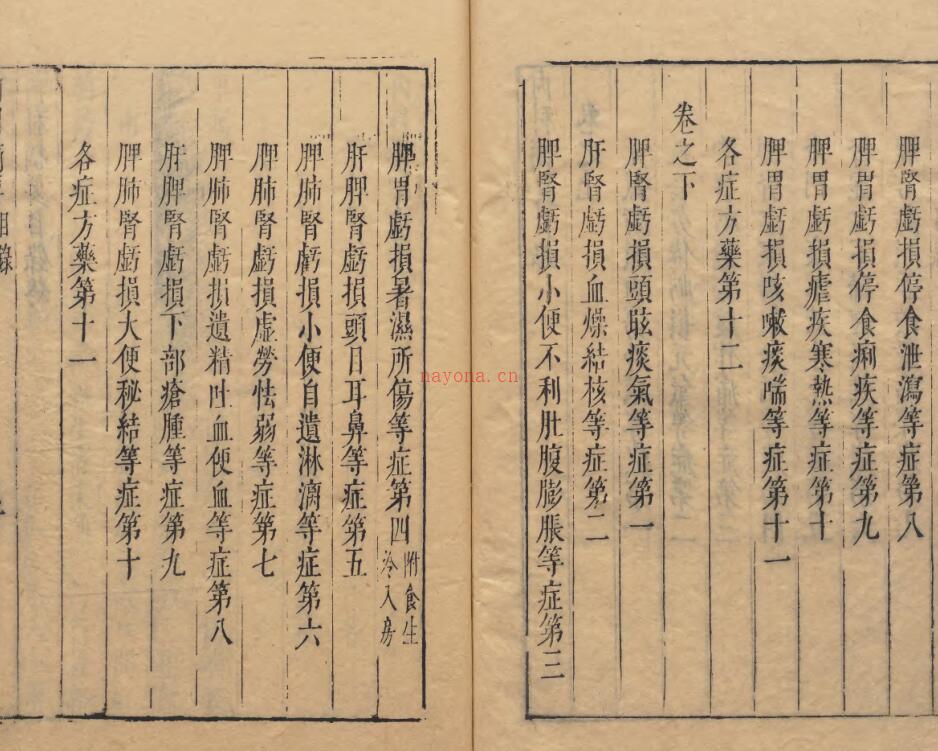 脾腎虧損停食泄瀉等症第八
脾胃虧損停食痢疾等症第九
脾胃虧損瘧疾寒熱等症第十
脾胃虧損咳嗽痰喘等症第十一
各症方藥第十二
卷之下
脾腎虧損頭眩痰氣等症第一
肝腎虧損血燥結核等症第二
脾腎虧損小便不利肚腹膨脹等症第三
脾胃虧損暑濕所傷等症第四附食生冷入房
肝脾腎虧損頭目耳鼻等症第五
脾肺腎虧損小便自遺淋漓等症第六
脾肺腎虧損虛勞怯弱等症第七
脾肺腎虧損遺精吐血便血等症第八
肝脾腎虧損下部瘡腫等症第九
脾肺腎虧損大便秘結等症第十
各症方藥第十一
nayona.cn